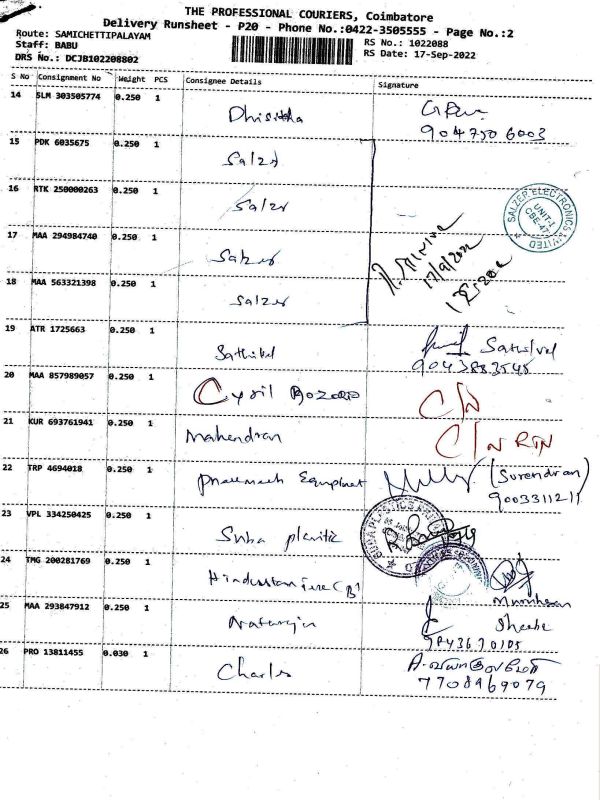 THE PROFESSIONAL COURIERS, Coimbatore
Delivery Runsheet - P20 - Phone No.:0422-3505555 - Page No.:2
Route: SAMICHETTIPALAYAM
Staff: BABU
DRS No.: DCJB102208802
RS No.: 1022088
RS Date: 17-Sep-2022
S No Consignment No Weight PCS Consignee Details Signature
14 SLM 303505774 0.250 1 Dhisitha
9047506003
15 PDK 6035675 0.250 1 Salzer
16 RTK 250000263 0.250 1 Salzer
17 MAA 294984740 0.250 1 Salzer
18 MAA 563321398 0.250 1 Salzer
17/9/2022
SALZER ELECTRONICS LIMITED
UNIT-1
CBE-47
19 ATR 1725663 0.250 1 Sathikel Sathivel
9043883545
20 MAA 857989057 0.250 1 Cyril Bozario C/N
21 KUR 693761941 0.250 1 Mahendran C/N RTN
22 TRP 4694018 0.250 1 Pneumech Equpment (Surendran)
9003311211
23 VPL 334250425 0.250 1 Suba plastic
24 TMG 200281769 0.250 1 Hindustan
25 MAA 293847912 0.250 1 Natarajn Sheeba
26 PRO 13811455 0.030 1 Charles
7708969079